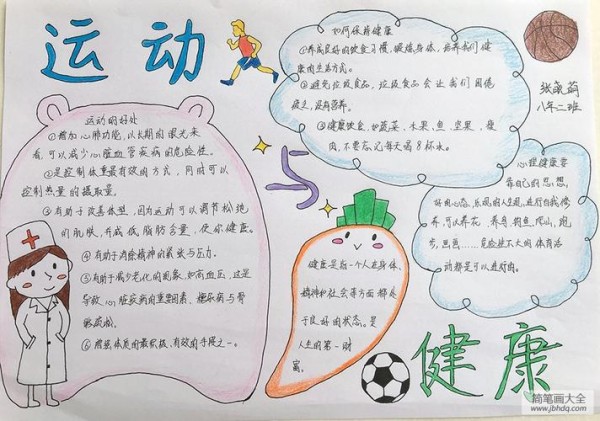 运动
与
健康
运动的好处
①增加心肺功能，以长期的眼光来
看，可以减少心脏血管疾病的危险性。
②是控制体重最有效的方式，同时可以
控制热量的摄取量。
③有助于改善体型，因为运动可以调节松绝
们肌肤，并减低脂肪含量，使你健康。
④有助于消除精神的紧张与压力。
⑤有助于减少老化的现象，如高血压，这是
导致心脏疾病的重要因素、糖尿病与骨
骼疏松。
⑥增强体质的最积极、有效的手段之一。
如何保持健康
①养成良好的饮食习惯，锻炼身体，培养我们健
康的生活方式。
②避免垃圾食品，垃圾食品会让我们困倦
疲乏，没有营养。
③健康饮食，如蔬菜、水果、鱼、坚果、瘦
肉，不要忘记每天喝8杯水。
张
八年二班
心理健康要
靠自己的思想，
好的心态，乐观的人生观，进行自我修
养，可以养花、养鸟、钓鱼、爬山、跑
步、画画……危险性不大的体育活
动都是可以进行的。
健康是指一个人在身体、
精神和社会等方面都处
于良好的状态。是
人生的第一财
富。
简笔画大全
www.jbhdq.com